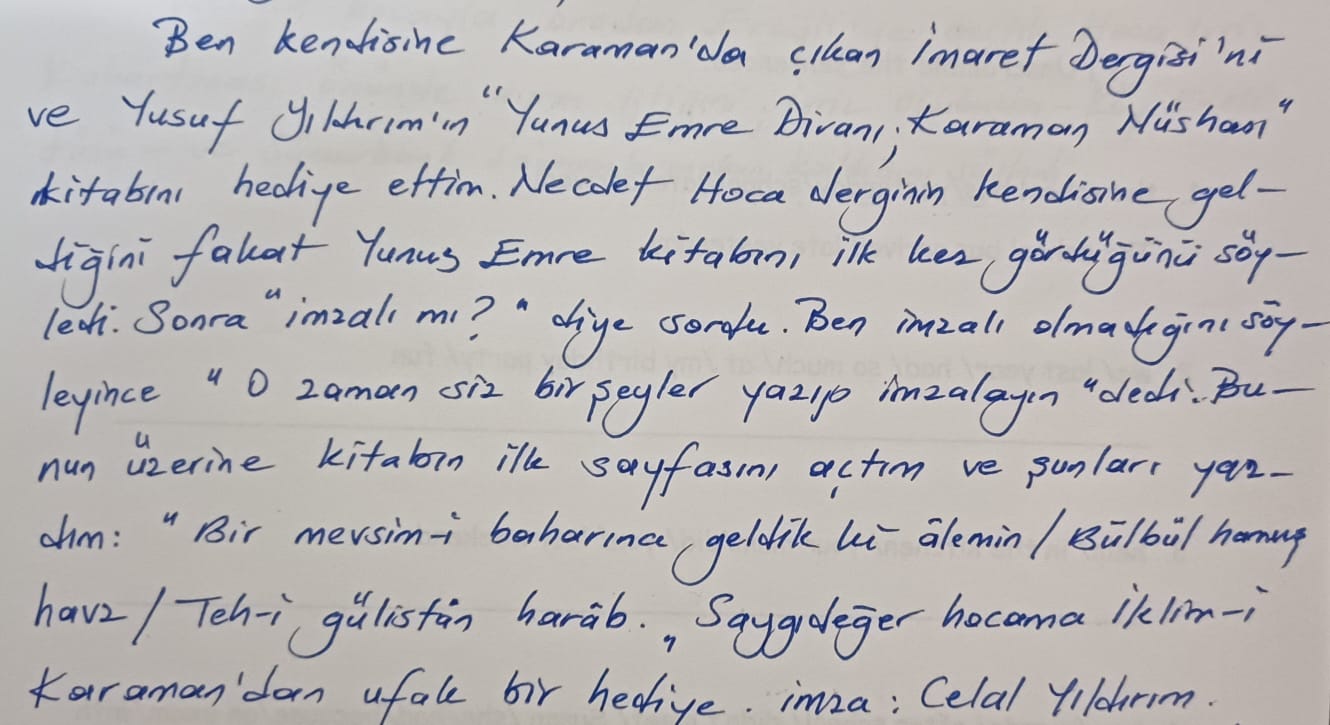 Ben kendisine Karaman'da çıkan İmaret Dergisi'ni
ve Yusuf Yıldırım'ın "Yunus Emre Divanı, Karaman Nüshası"
kitabını hediye ettim. Necdet Hoca derginin kendisine gel-
diğini fakat Yunus Emre kitabını ilk kez gördüğünü söy-
ledi. Sonra "imzalı mı?" diye sordu. Ben imzalı olmadığını söy-
leyince "O zaman siz bir şeyler yazıp imzalayın" dedi. Bu-
nun üzerine kitabın ilk sayfasını açtım ve şunları yaz-
dım: "Bir mevsim-i baharına geldik ki âlemin / Bülbül hamuş
havz / Teh-i gülistân harâb." Saygıdeğer hocama İklim-i
Karaman'dan ufak bir hediye. imza: Celal Yıldırım.